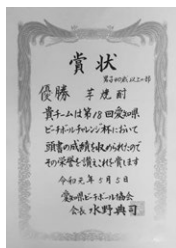 賞状
男子40歳以上の部
優勝 芋焼酎
貴チームは第18回愛知県
ビーチボールチャレンジ杯において
頭書の成績を収められたので
その栄誉を讃えこれを賞します
令和元年5月5日
愛知県ビーチボール協会
会長 水野典司